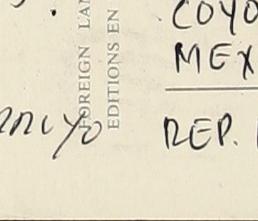 COYO
MEX
REP.
FOREIGN LAN
EDITIONS EN